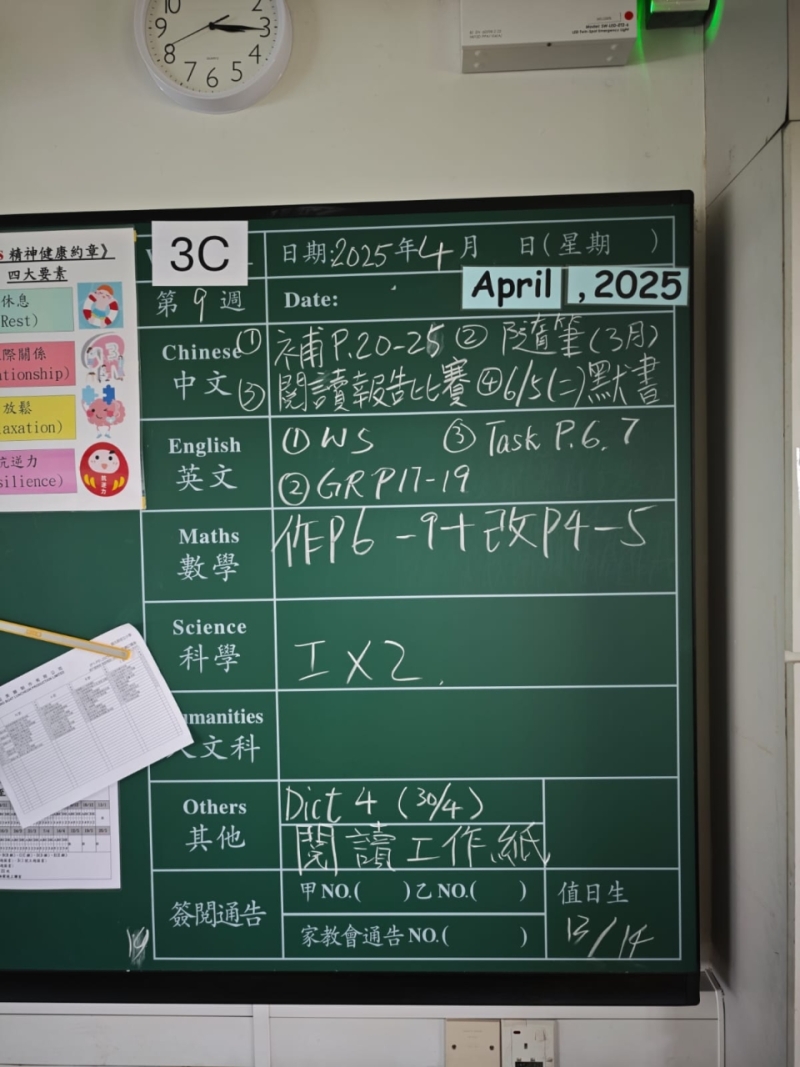 10 2
9 3
8 4
7 6 5
精神健康約章》
四大要素
休息
Rest)
際關係
ationship)
放鬆
axation)
抗逆力
silience)
3C
日期:2025年4月 日(星期 )
第9週 Date: April , 2025
Chinese ① 補P.20-25 ② 隨筆(3月)
中文 ③ 閱讀報告比賽 ④ 6/5(二)默書
English ① WS ③ Task P.6, 7
英文 ② GR P17-19
Maths 作P6-9+改P4-5
數學
Science
科學 工X2.
umanities
人文科
Others Dict 4 (30/4)
其他 閱讀工作紙
簽閱通告 甲NO.( )乙NO.( ) 值日生
家教會通告NO.( ) 13/14
19